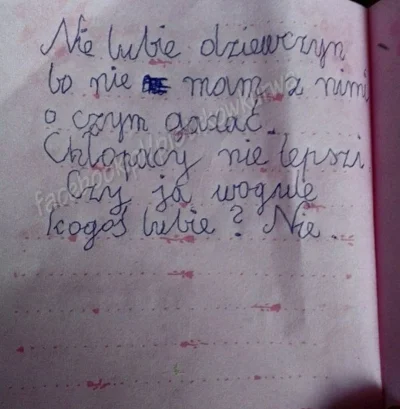 Nie lubie dziewczyn
bo nie mam z nimi
o czym gadać.
Chłopacy nie lepszi.
Czy ja wogule
kogoś lubie? Nie.